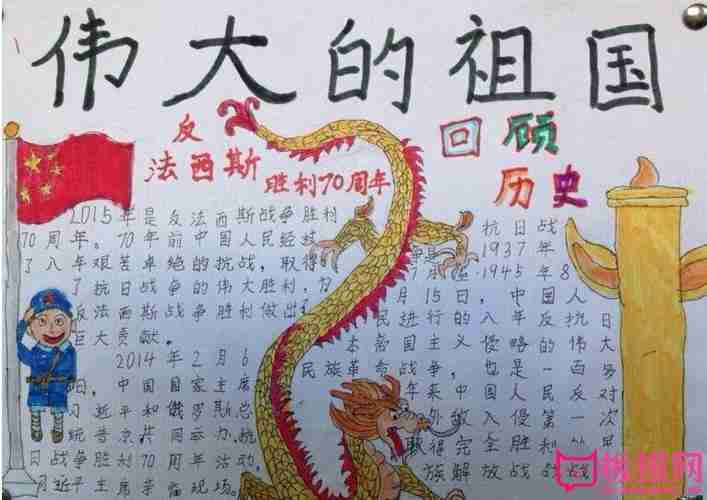 伟大的祖国
反
法西斯 胜利70周年
回顾
历史
2015年是反法西斯战争胜利
70周年。70年前中国人民经过
了八年艰苦卓绝的抗战，取得
了抗日战争的伟大胜利，为
反法西斯战争胜利做出了
巨大贡献。
2014年2月6
日，中国国家主席
习近平和俄罗斯总
统普京共同举办，抗
日战争胜利70周年活动，
习近平主席亲临现场。
抗日战
争是1937年
7月 1945年8
月15日，中国人
民进行的八年反抗日
本帝国主义侵略的伟大
民族革命战争，也是一百多
年来中国人民反对
外敌入侵第一次
取得完全胜利的民
族解放战战战